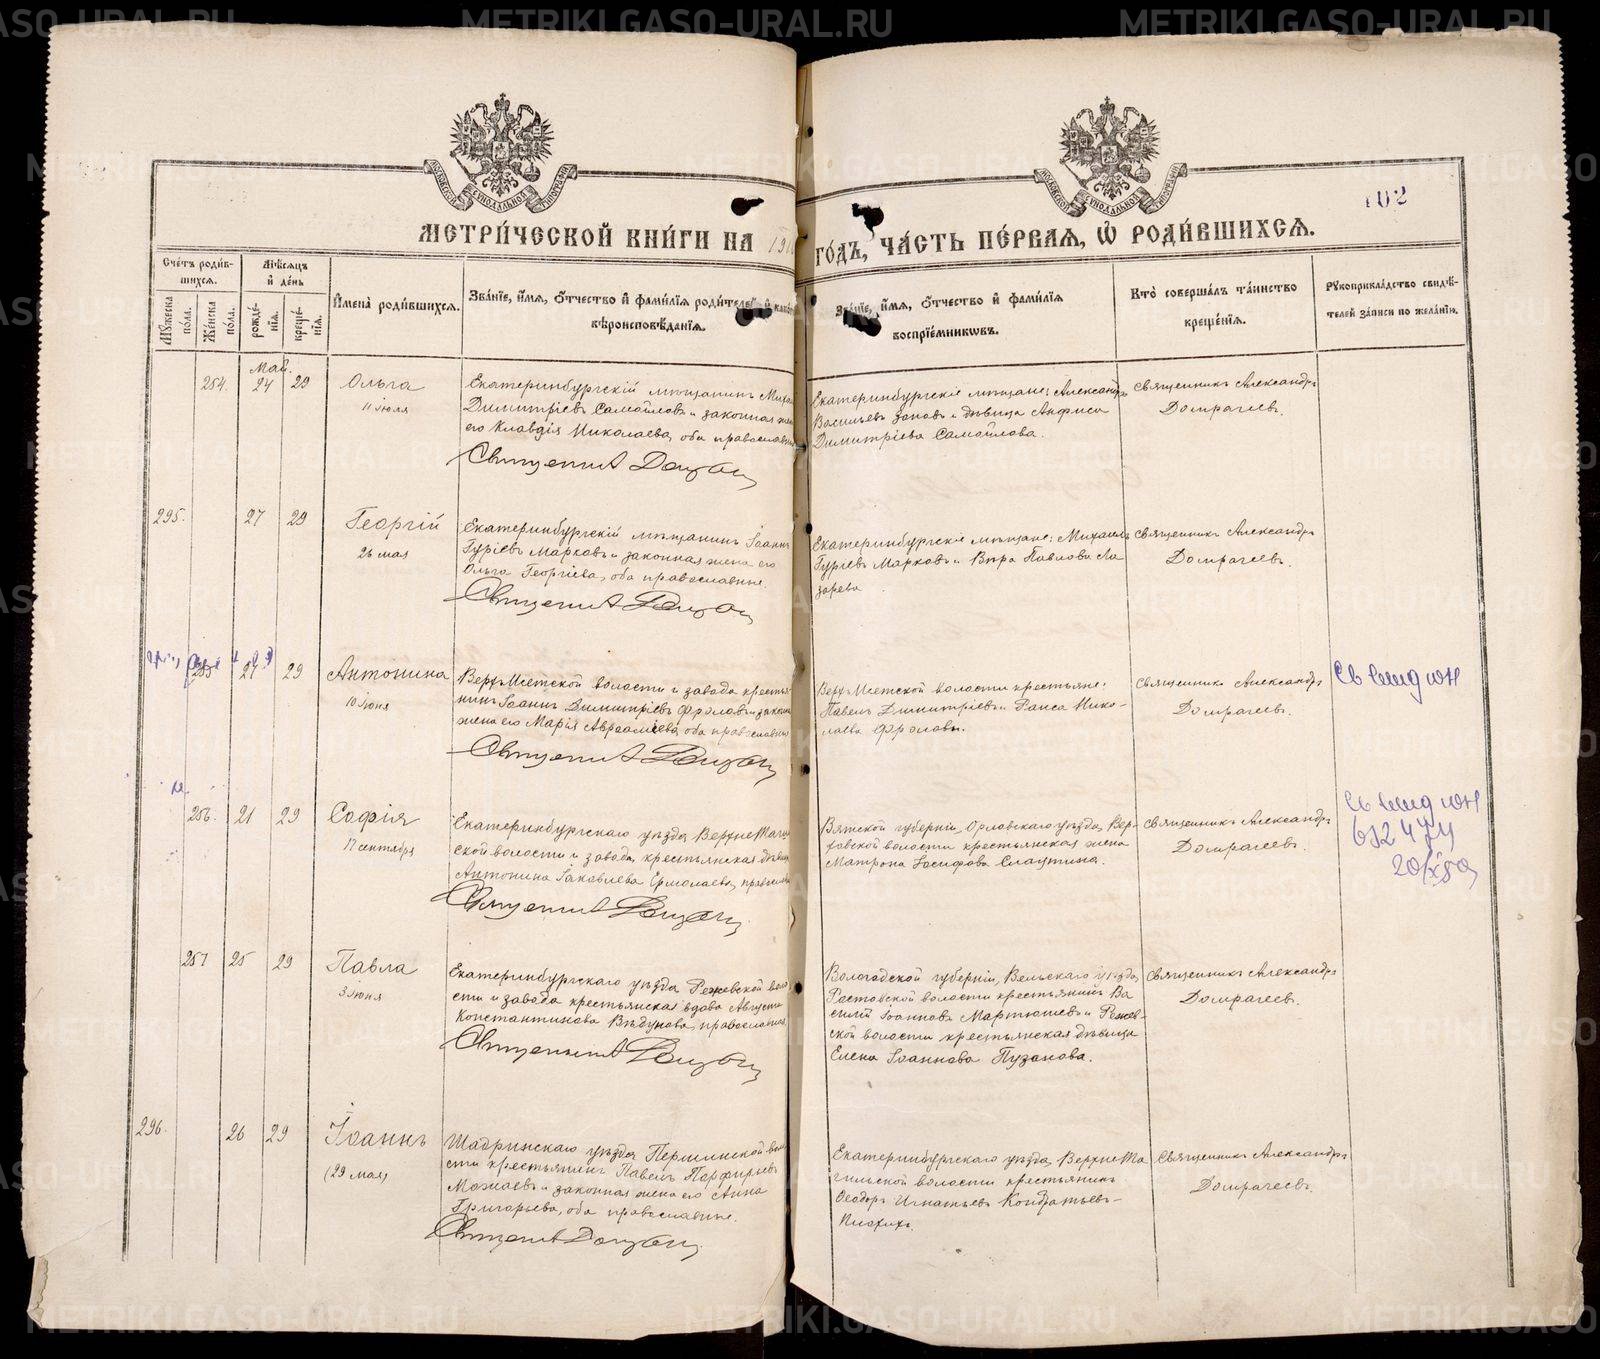 МЕТРИ́ЧЕСКОЙ КНИ́ГИ НА 191
ГО́ДЪ, ЧА́СТЬ ПЕ́РВАЯ, Ѡ РОДИ́ВШИХСЯ.
102
Сче́тъ роди́в-
шихся.
Мѣ́сяцъ
и҆ де́нь
Мꙋ́жеска
по́ла.
Же́нска
по́ла.
рожде́-
нїя.
креще́-
нїя.
И҆мена̀ роди́вшихся.
Зва́нїе, и҆́мя, ѻ҆́тчество и҆ фами́лїя роди́телей, и҆ како́
вѣроисповѣ́данїя.
Зва́нїе, и҆́мя, ѻ҆́тчество и҆ фами́лїя
воспрїе́мникѡвъ.
Кто̀ соверша́лъ та́инство
креще́нїя.
Рꙋкоприкла́дство свидѣ́-
телей за́писи по жела́нїю.
Май.
254.
24
29
Ольга
11 іюля
Екатеринбургскій мѣщанинъ Миха
Димитріевъ Самойловъ и законная же
его Клавдія Николаева, оба православн
Священникъ
Екатеринбургскіе мѣщане: Александръ
Васильевъ и дѣвица Анфиса
Димитріева Самойлова.
Священникъ Александръ
Домрачевъ.
295.
27
29
Георгій
26 мая
Екатеринбургскій мѣщанинъ Іоаннъ
Гуріевъ Марковъ и законная жена его
Ольга Георгіева, оба православные.
Священникъ
Екатеринбургскіе мѣщане: Михаилъ
Гуріевъ Марковъ и Вѣра Павлова Ла
зарева
Священникъ Александръ
Домрачевъ.
255
27
29
Антонина
10 іюня
Верхъ-Исетской волости и завода крестья-
нинъ Іоаннъ Димитріевъ Фроловъ и закон
жена его Марія Авраамиева, оба православн
Священникъ
Верхъ-Исетской волости крестьяне:
Павелъ Димитріевъ и Раиса Нико-
лаева Фроловы.
Священникъ Александръ
Домрачевъ.
256.
21
29
Софія
17 сентября
Екатеринбургскаго уѣзда, Верхне-Таги
ской волости и завода, крестьянская дѣвица
Антонина Іаковлева Ермолаева, православ
Священникъ
Вятской губерніи, Орловскаго уѣзда, Вер-
ховской волости крестьянская жена
Матрона Іосифова Слаутина.
Священникъ Александръ
Домрачевъ.
257
25
29
Павла
3 іюня
Екатеринбургскаго уѣзда Режевской воло
сти и завода крестьянская вдова Августа
Константинова Вѣдунова, православная
Священникъ
Вологодской губерніи, Вельскаго уѣзда
Ростовской волости крестьянинъ Ва
силій Іоанновъ Мартюшевъ и Режев-
ской волости крестьянская дѣвица
Елена Іоаннова Пузанова.
Священникъ Александръ
Домрачевъ.
296.
26
29
Іоаннъ
(29 мая)
Шадринскаго уѣзда Першинской воло
сти крестьянинъ Павелъ Порфирьевъ
Можаевъ и законная жена его Анна
Григорьева, оба православные.
Священникъ
Екатеринбургскаго уѣзда, Верхне-Та
гильской волости крестьянинъ
Ѳеодоръ Игнатьевъ Кондратьевъ-
Священникъ Александръ
Домрачевъ.
METRIKI.GASO-URAL.RU